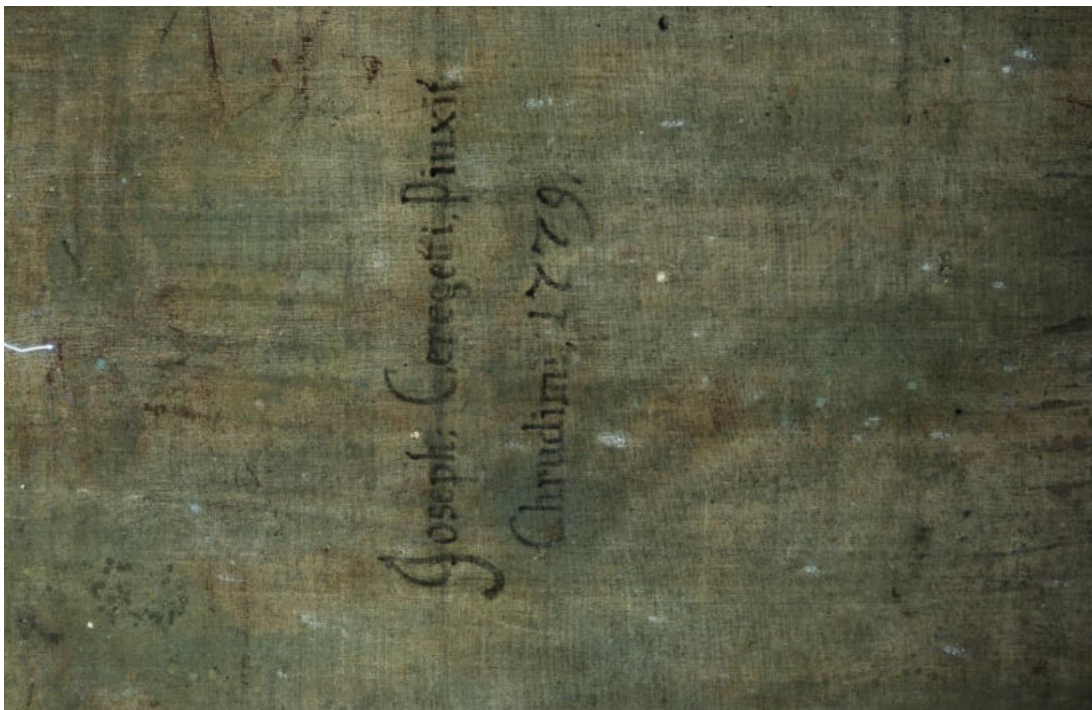 Joseph: Ceregetti. Pinxit
Chrudimi, 1779.